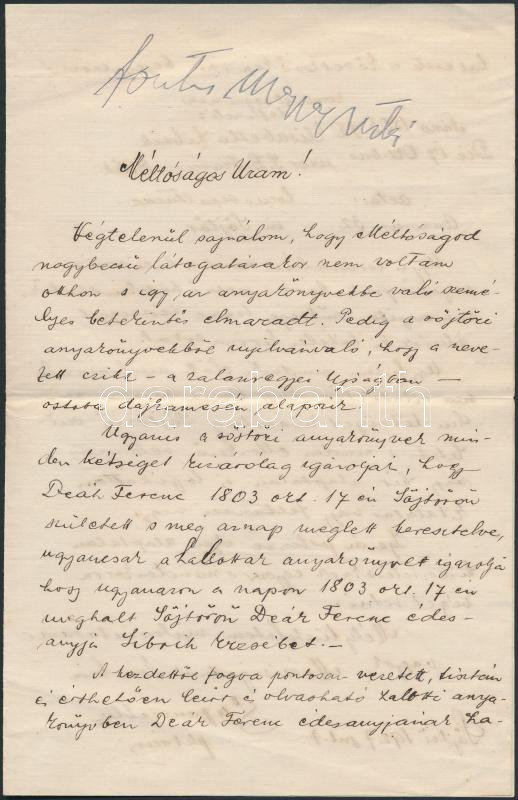 Méltóságos Uram!
Végtelenül sajnálom, hogy Méltóságod
nagybecsű látogatásakor nem voltam
otthon s így az anyakönyvekbe való szemé-
lyes betekintés elmaradt. Pedig a söjtöri
anyakönyvekből nyilvánvaló, hogy a neve-
zett czikk – a zalamegyei Ujságban –
ostoba dajkamesén alapszik.
Ugyanis a söjtöri anyakönyvek min-
den kétséget kizárólag igazolják, hogy
Deák Ferenc 1803 okt. 17 én Söjtörön
született s még aznap meglett keresztelve,
ugyancsak a halottak anyakönyvei igazolja
hogy ugyanazon a napon 1803 okt. 17 én
meghalt Söjtörön Deák Ferenc édes-
anyja Sibrik Erzsébet. –
A kezdettől fogva pontosan vezetett, tisztán
és érthetően leírt és olvasható halotti anya-
könyvben Deák Ferenc édesanyjának ha-
darabanth.com